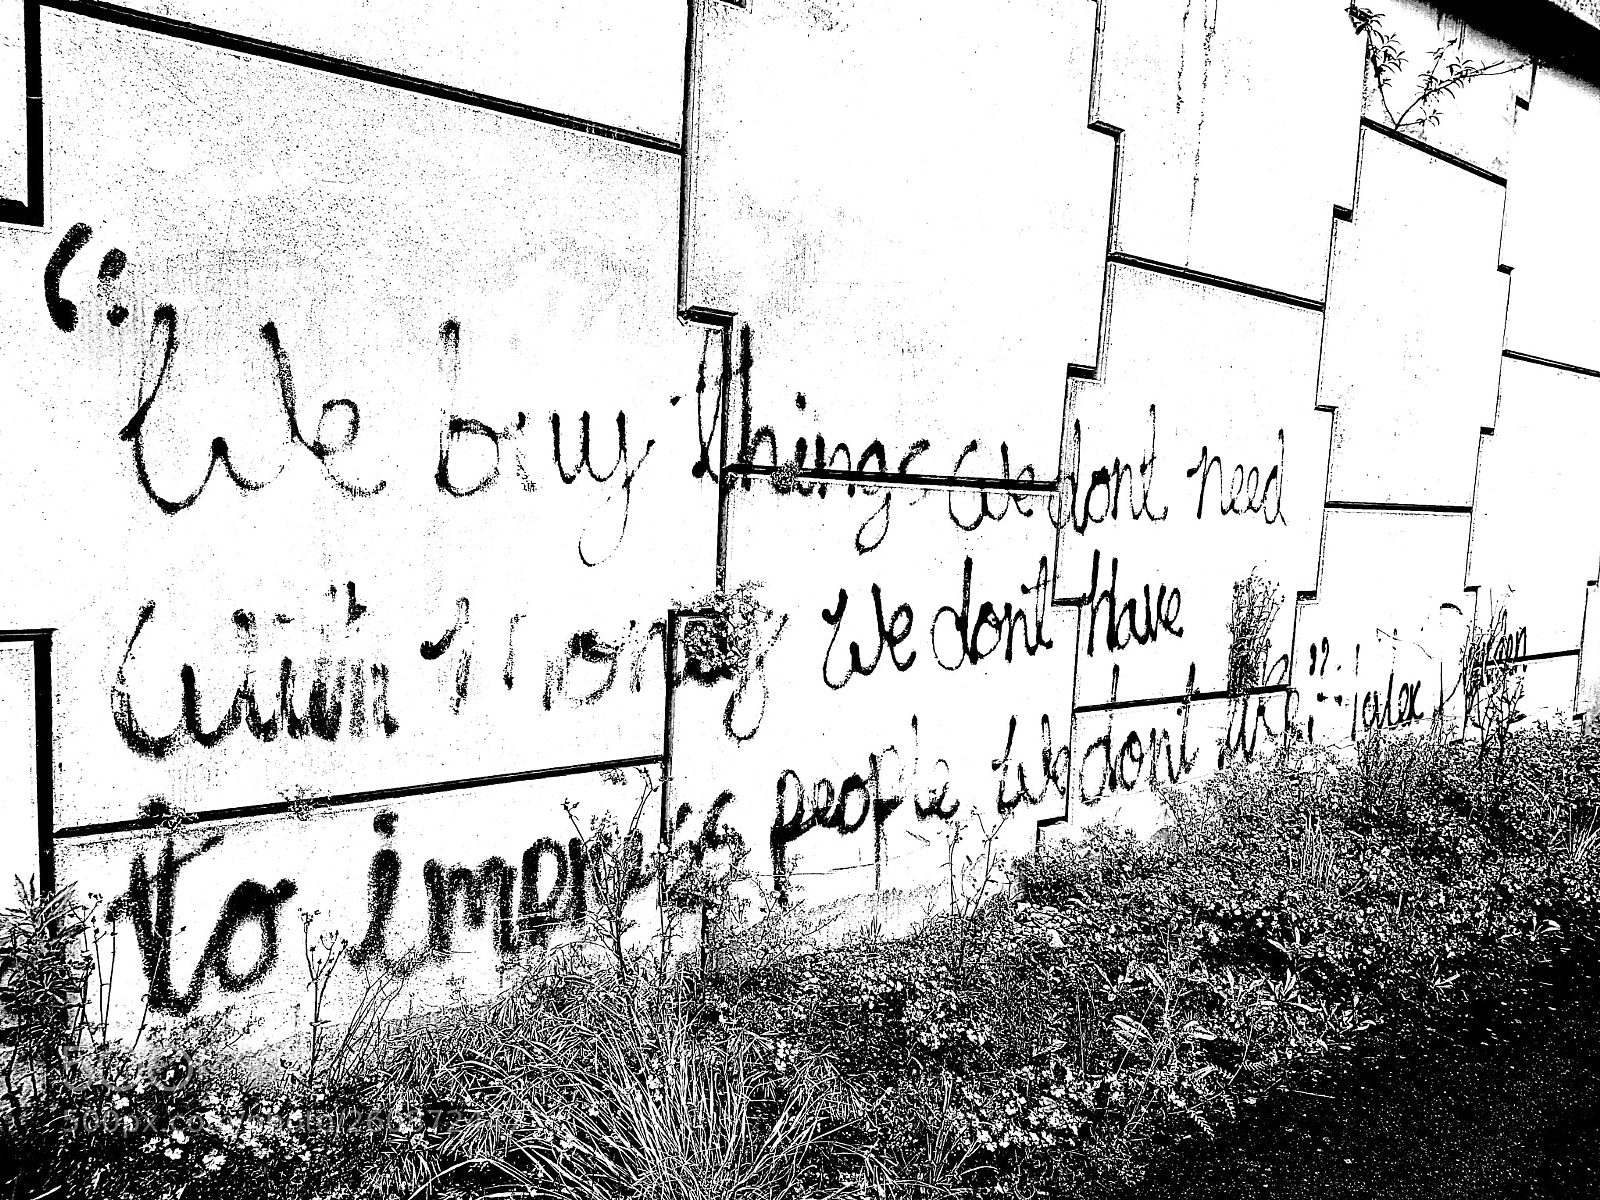 "We buy things we dont need
with money We dont have
to impress people we dont like"